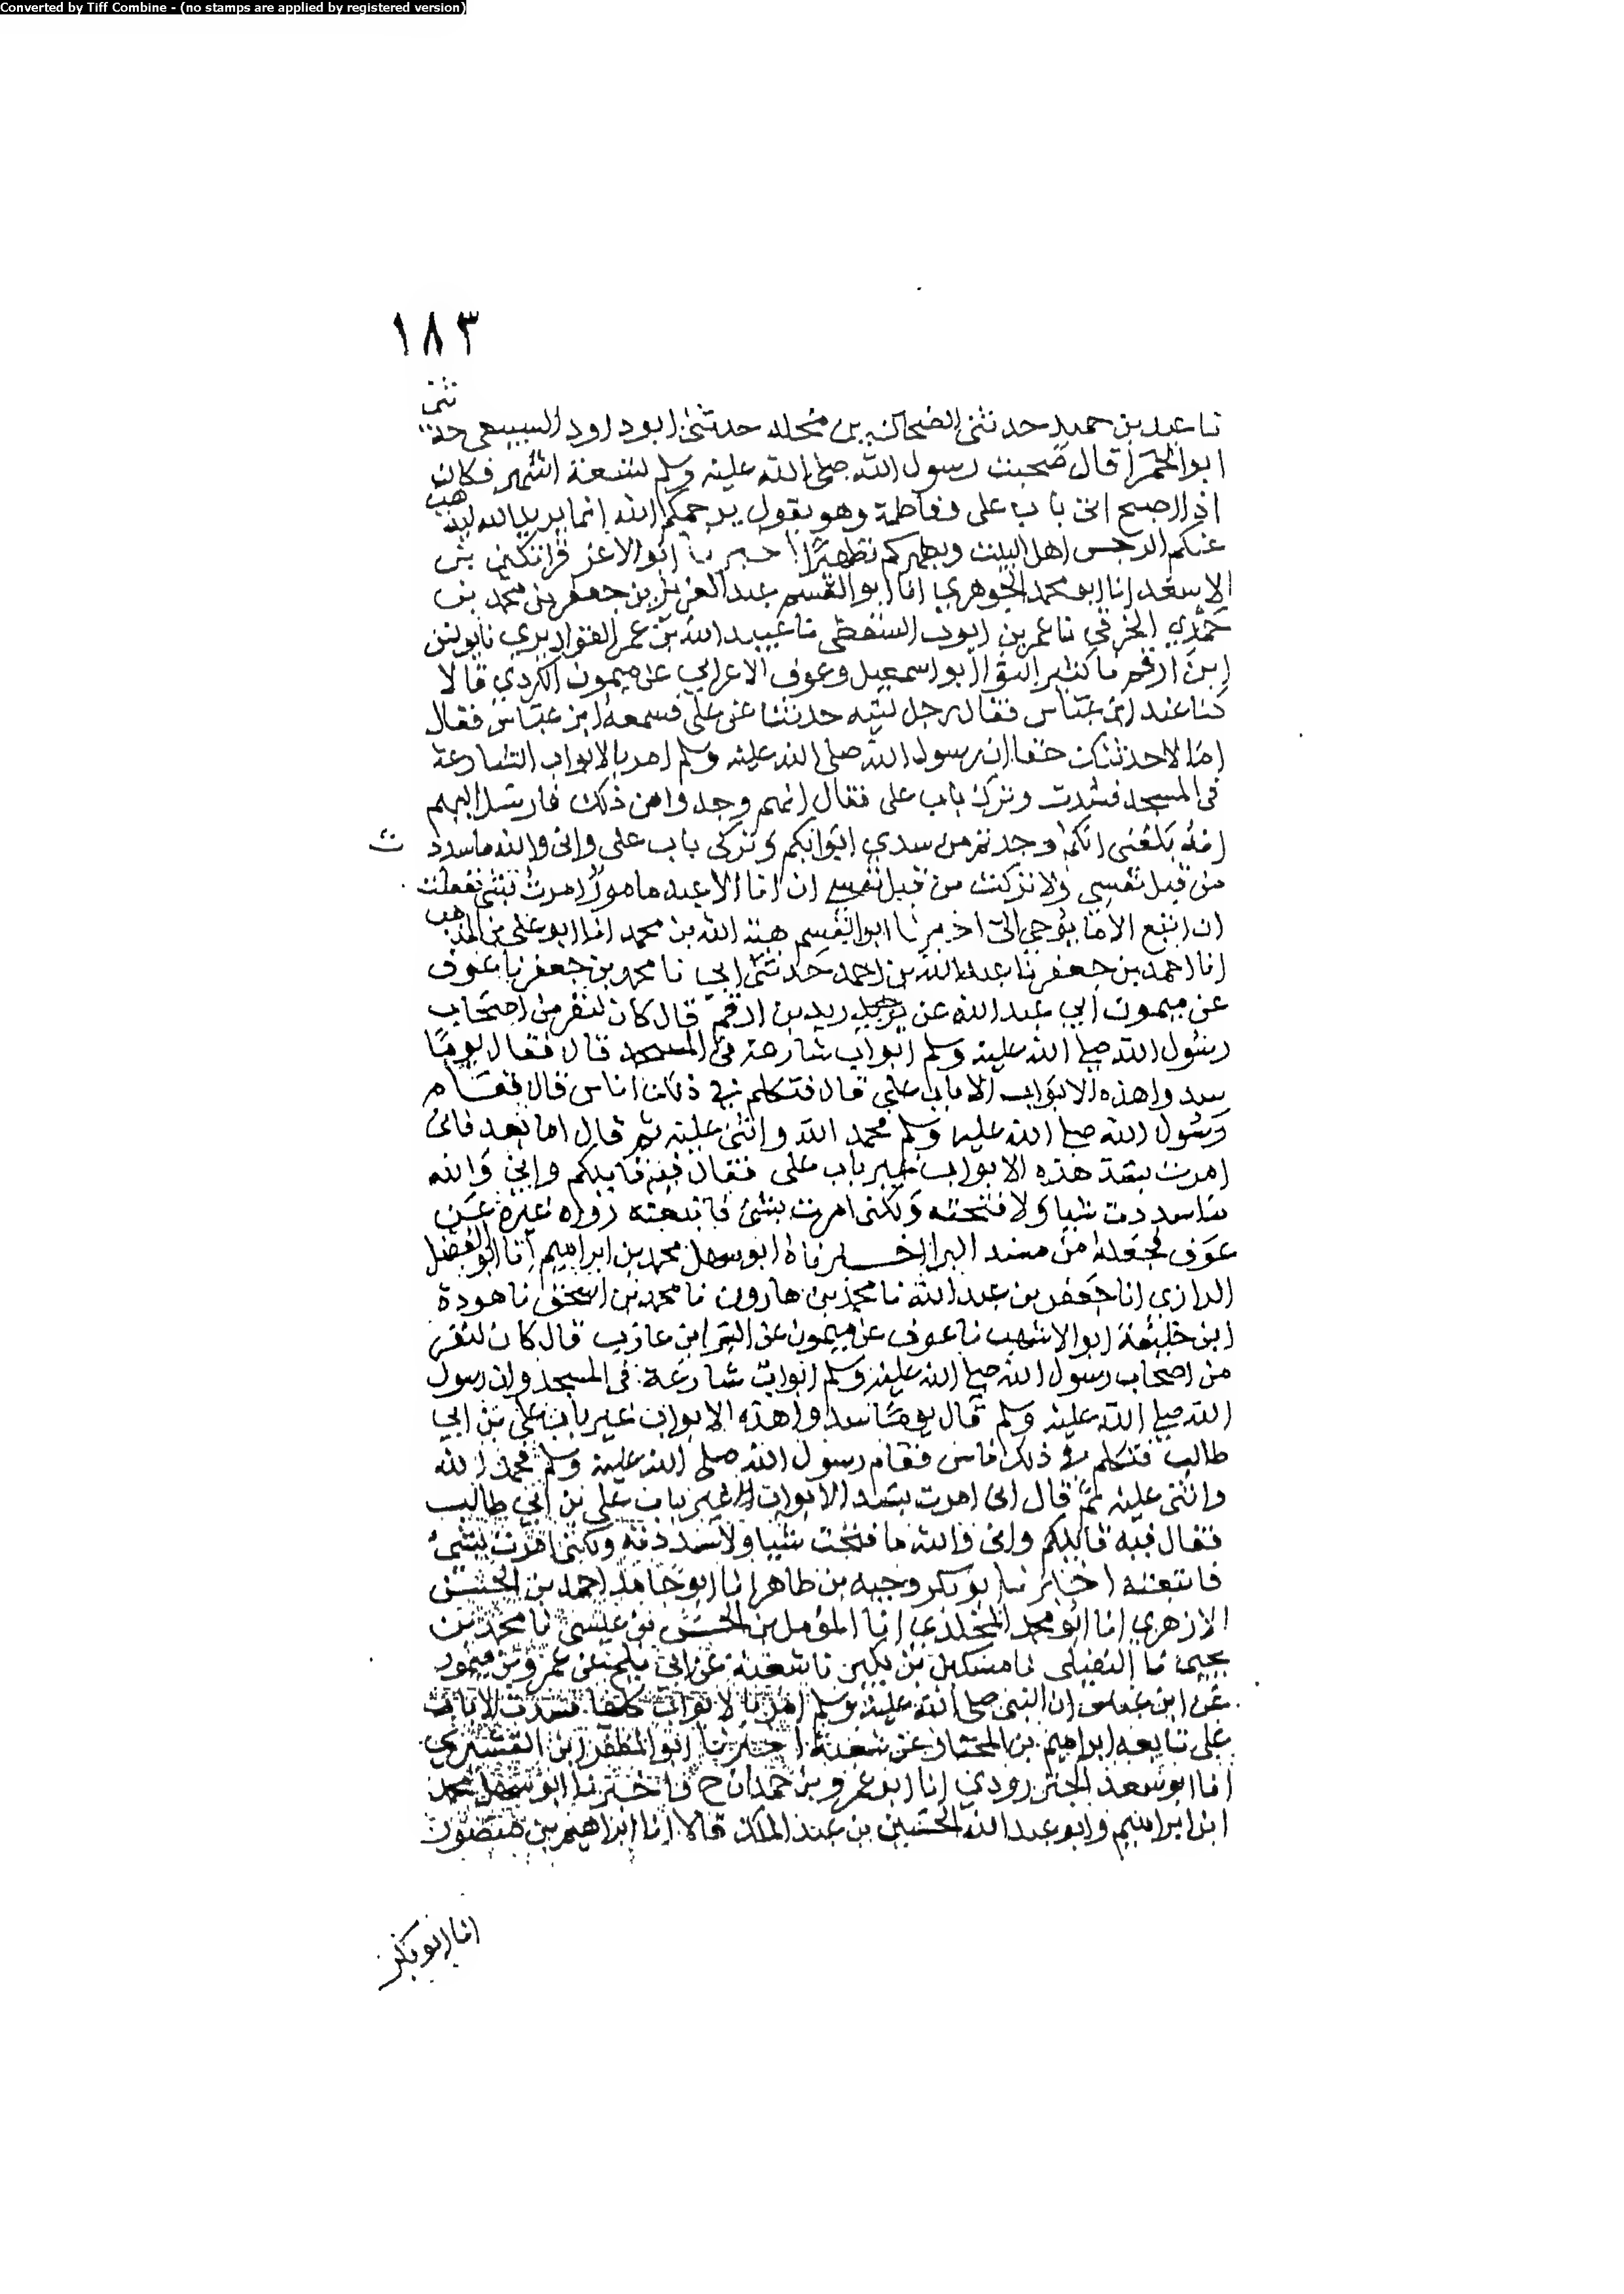 Converted by Tiff Combine - (no stamps are applied by registered version)
١٨٣
نا عبد بن حميد حدثني الضحاك بن مخلد حدثني ابو داود السبيعي حدثني
ابو الحمرا قال صحبت رسول الله صلى الله عليه وسلم تسعة اشهر فكان
اذا اصبح اتى باب على وفاطمة وهو يقول يرحمكم الله انما يريد الله ليذهب
عنكم الرجس اهل البيت ويطهركم تطهيرا اخبرنا ابو الاعز قراتكين بن
الاسعد انا ابو محمد الجوهري انا ابو القسم عبد العزيز بن جعفر بن محمد بن
حمدي الخرقي نا عمر بن ايوب السقطي نا عبيد الله بن عمر القواريري نا يونس
ابن ارقم نا كثير النوا ابو اسمعيل وعوف الاعرابي عن ميمون الكردي قالا
كنا عند ابن عباس فقال رجل ليته حدثنا عن على فسمعه ابن عباس فقال
اما لاحدثنك حقا ان رسول الله صلى الله عليه وسلم امر بالابواب الشارعة
فى المسجد فسدت وترك باب على فقال انهم وجدوا من ذلك فارسل اليهم
انه بلغنى انكم وجدتم من سدي ابوابكم وتركى باب على وانى والله ما سددت
من قبل نفسي ولا تركت من قبل نفسي ان انا الا عبد مامور امرت بشى ففعلت
ان اتبع الا ما يوحى الى اخبرنا ابو القسم هبة الله بن محمد انا ابو على بن المذهب
انا احمد بن جعفر نا عبد الله بن احمد حدثني ابي نا محمد بن جعفر نا عوف
عن ميمون ابي عبد الله عن زيد بن ارقم قال كان لنفر من اصحاب
رسول الله صلى الله عليه وسلم ابواب شارعة فى المسجد قال فقال يوما
سدوا هذه الابواب الا باب على قال فتكلم في ذلك اناس قال فقام
رسول الله صلى الله عليه وسلم فحمد الله واثنى عليه ثم قال اما بعد فانى
امرت بسد هذه الابواب غير باب على فقال فيه قايلكم وانى والله
ما سددت شيا ولا فتحته ولكنى امرت بشئ فاتبعته رواه غيره عن
عوف فجعله من مسند البرا اخبرناه ابو سهل محمد بن ابراهيم انا ابو الفضل
الرازي انا جعفر بن عبد الله نا محمد بن هارون نا محمد بن اسحق نا هوذة
ابن خليفة ابو الاشهب نا عوف عن ميمون عن البرا بن عازب قال كان لنفر
من اصحاب رسول الله صلى الله عليه وسلم ابواب شارعة فى المسجد وان رسول
الله صلى الله عليه وسلم قال يوما سدوا هذه الابواب غير باب على بن ابي
طالب فتكلم في ذلك ناس فقام رسول الله صلى الله عليه وسلم فحمد الله
واثنى عليه ثم قال انى امرت بسد الابواب غير باب على بن ابي طالب
فقال فيه قايلكم وانى والله ما فتحت شيا ولا سددته ولكنى امرت بشئ
فاتبعته اخبرنا ابو بكر وجيه بن طاهر انا ابو حامد احمد بن الحسن
الازهري انا ابو محمد المخلدي انا المؤمل بن الحسن بن عيسى نا محمد بن
يحيى نا النفيلى نا مسكين بن بكير نا شعبة عن ابي بلج عن عمرو بن ميمون
عن ابن عباس ان النبى صلى الله عليه وسلم امر بالابواب كلها فسدت الا باب
على تابعه ابراهيم بن المختار عن شعبة اخبرنا ابو المظفر ابن القشيري
انا ابو سعد الجنزرودي انا ابو عمرو بن حمدان ح فاخبرنا ابو سهل محمد
ابن ابراهيم وابو عبد الله الحسين بن عبد الملك قالا انا ابراهيم بن منصور
انا ابو بكر